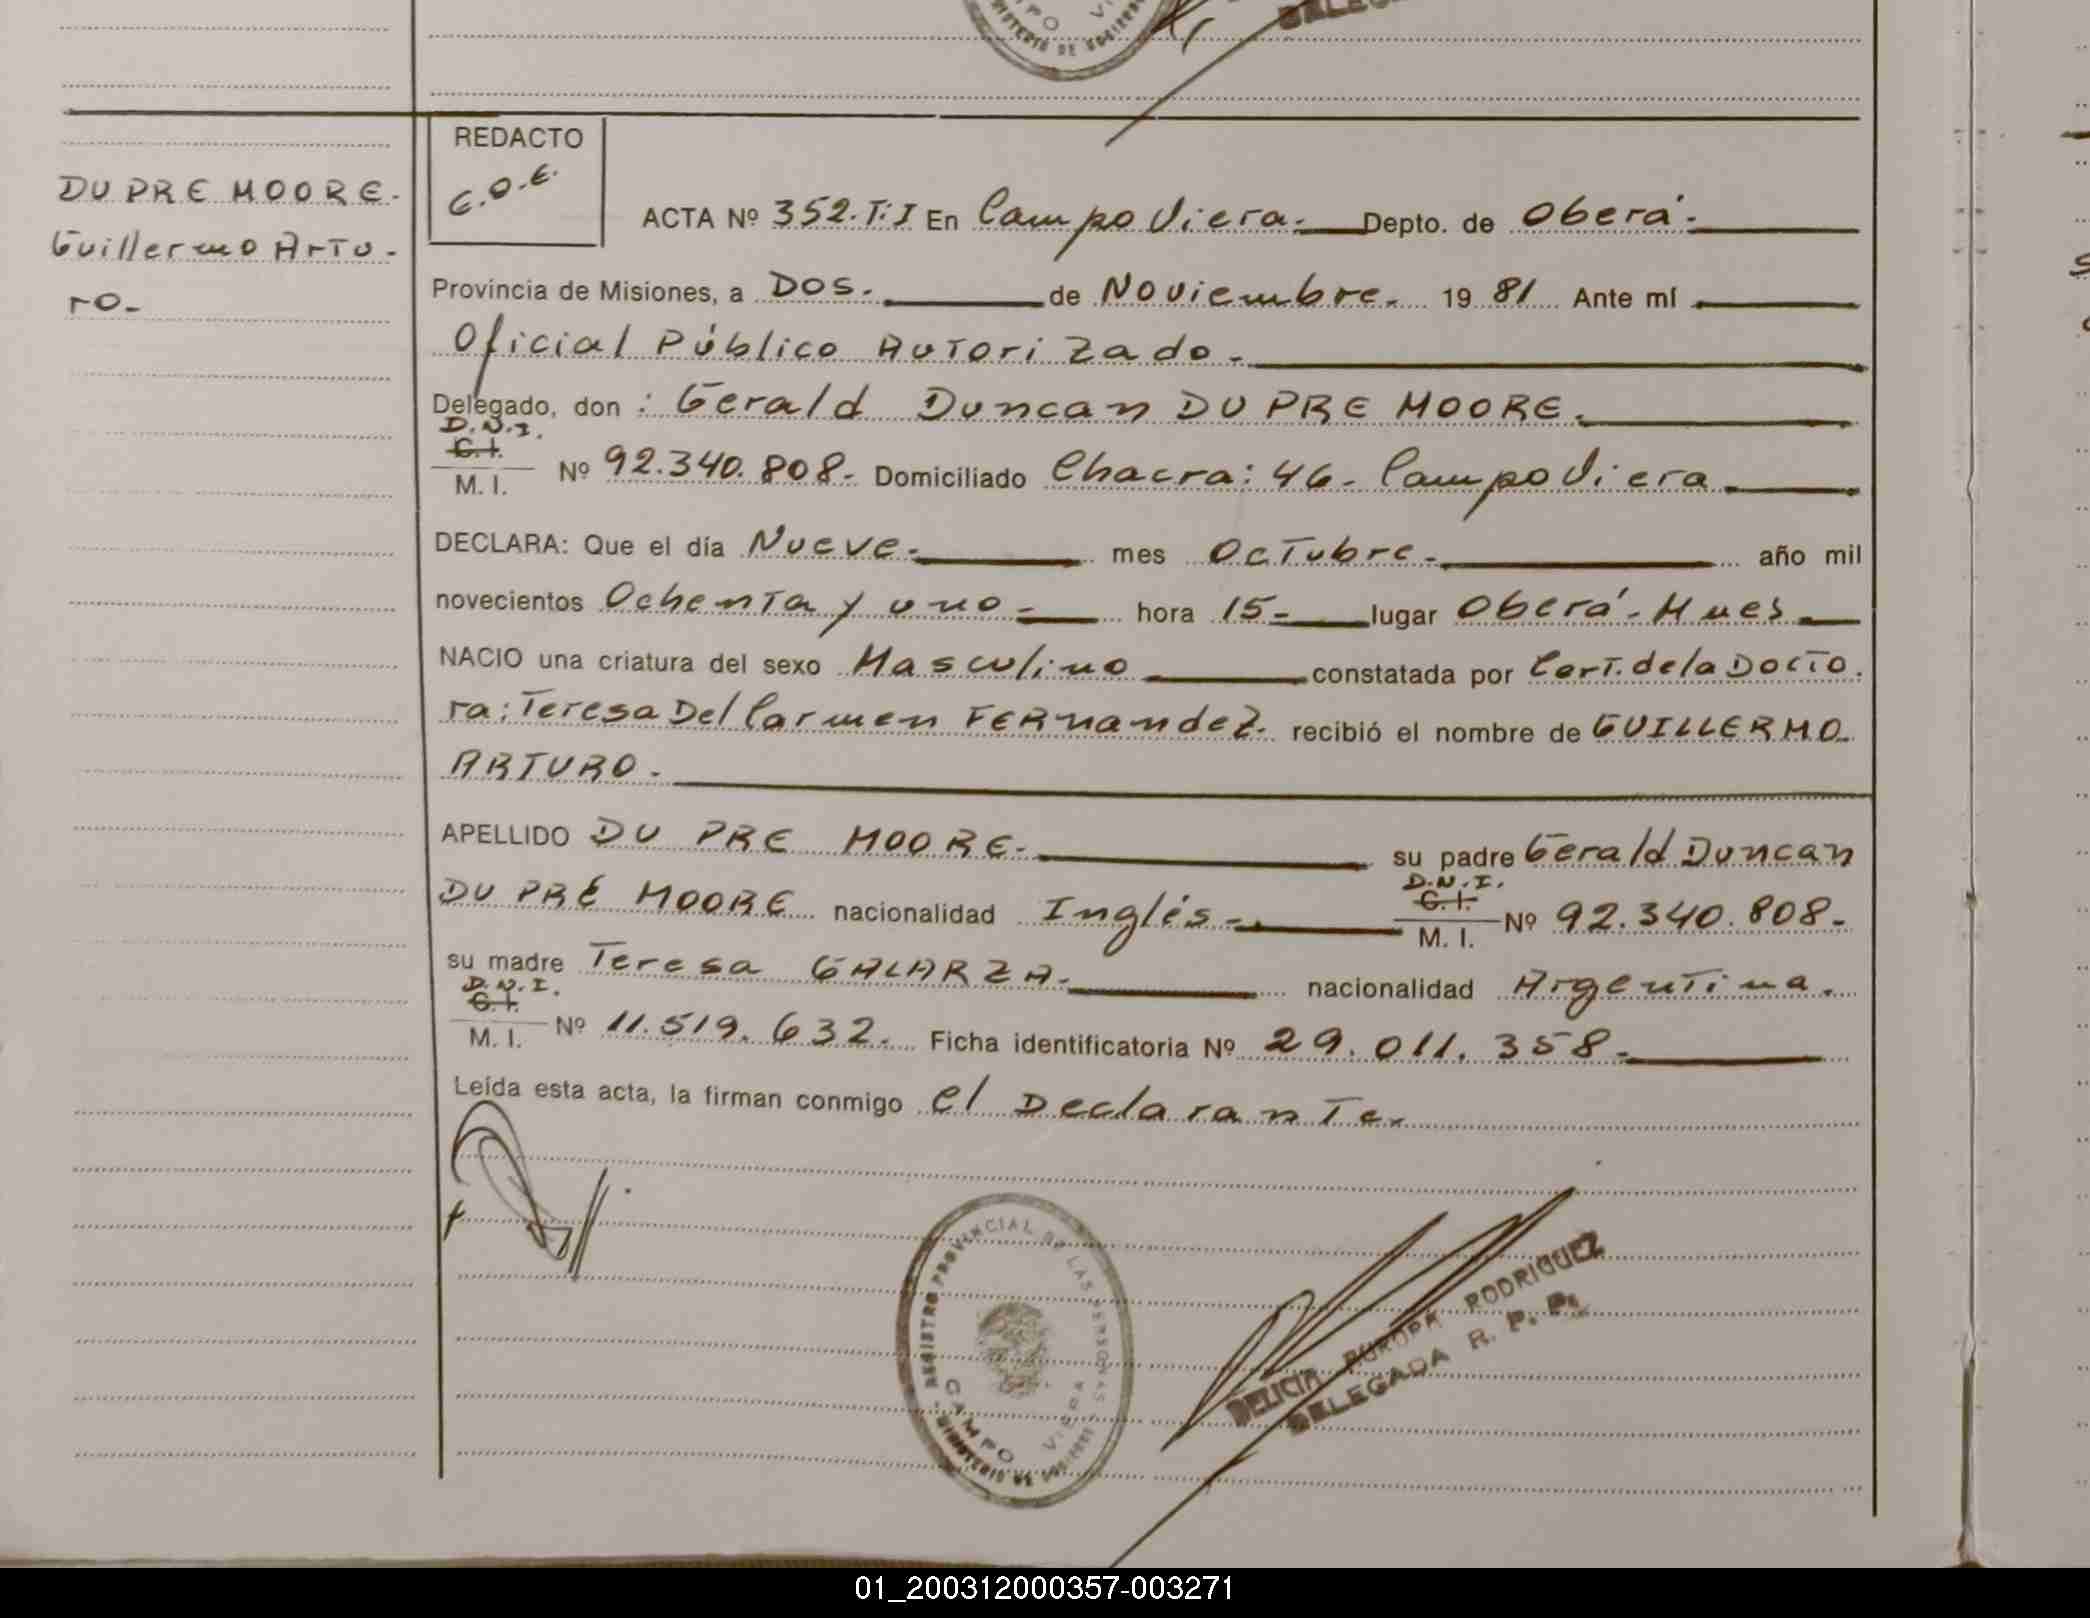 DU PRE MOORE.
Guillermo Artu-
ro-
REDACTO
ACTA Nº 352. T: I En Campo Viera.- Depto. de Oberá.-
Provincia de Misiones, a Dos.- de Noviembre. 19 81 Ante mí
Oficial Público Autorizado.-
Delegado, don : Gerald Duncan DU PRE MOORE.
D.N.I.
C.I.
M. I. Nº 92.340.808.- Domiciliado Chacra: 46- Campo Viera
DECLARA: Que el día Nueve.- mes Octubre.- año mil
novecientos Ochenta y uno- hora 15- lugar Oberá- Mnes
NACIO una criatura del sexo Masculino constatada por Cert. de la Docto.
ra: Teresa Del Carmen FERnandez. recibió el nombre de GUILLERMO
ARTURO.-
APELLIDO DU PRE MOORE.- su padre Gerald Duncan
DU PRÉ MOORE nacionalidad Inglés.-
D.N.I.
C.I.
M. I. Nº 92.340.808.-
su madre Teresa GALARZA.- nacionalidad Argentina.
D.N.I.
C.I.
M. I. Nº 11.519.632. Ficha identificatoria Nº 29.011.358.-
Leída esta acta, la firman conmigo el Declarante.
REGISTRO PROVINCIAL DE LAS PERSONAS
CAMPO VIERA
MINISTERIO DE GOBIERNO
DELICIA AURORA RODRIGUEZ
DELEGADA R. P. P.
01_200312000357-003271